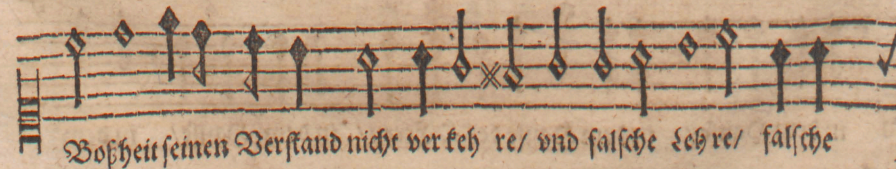 Boßheit ſeinen Verſtand nicht ver keh re/ vnd falſche Leh re/ falſche